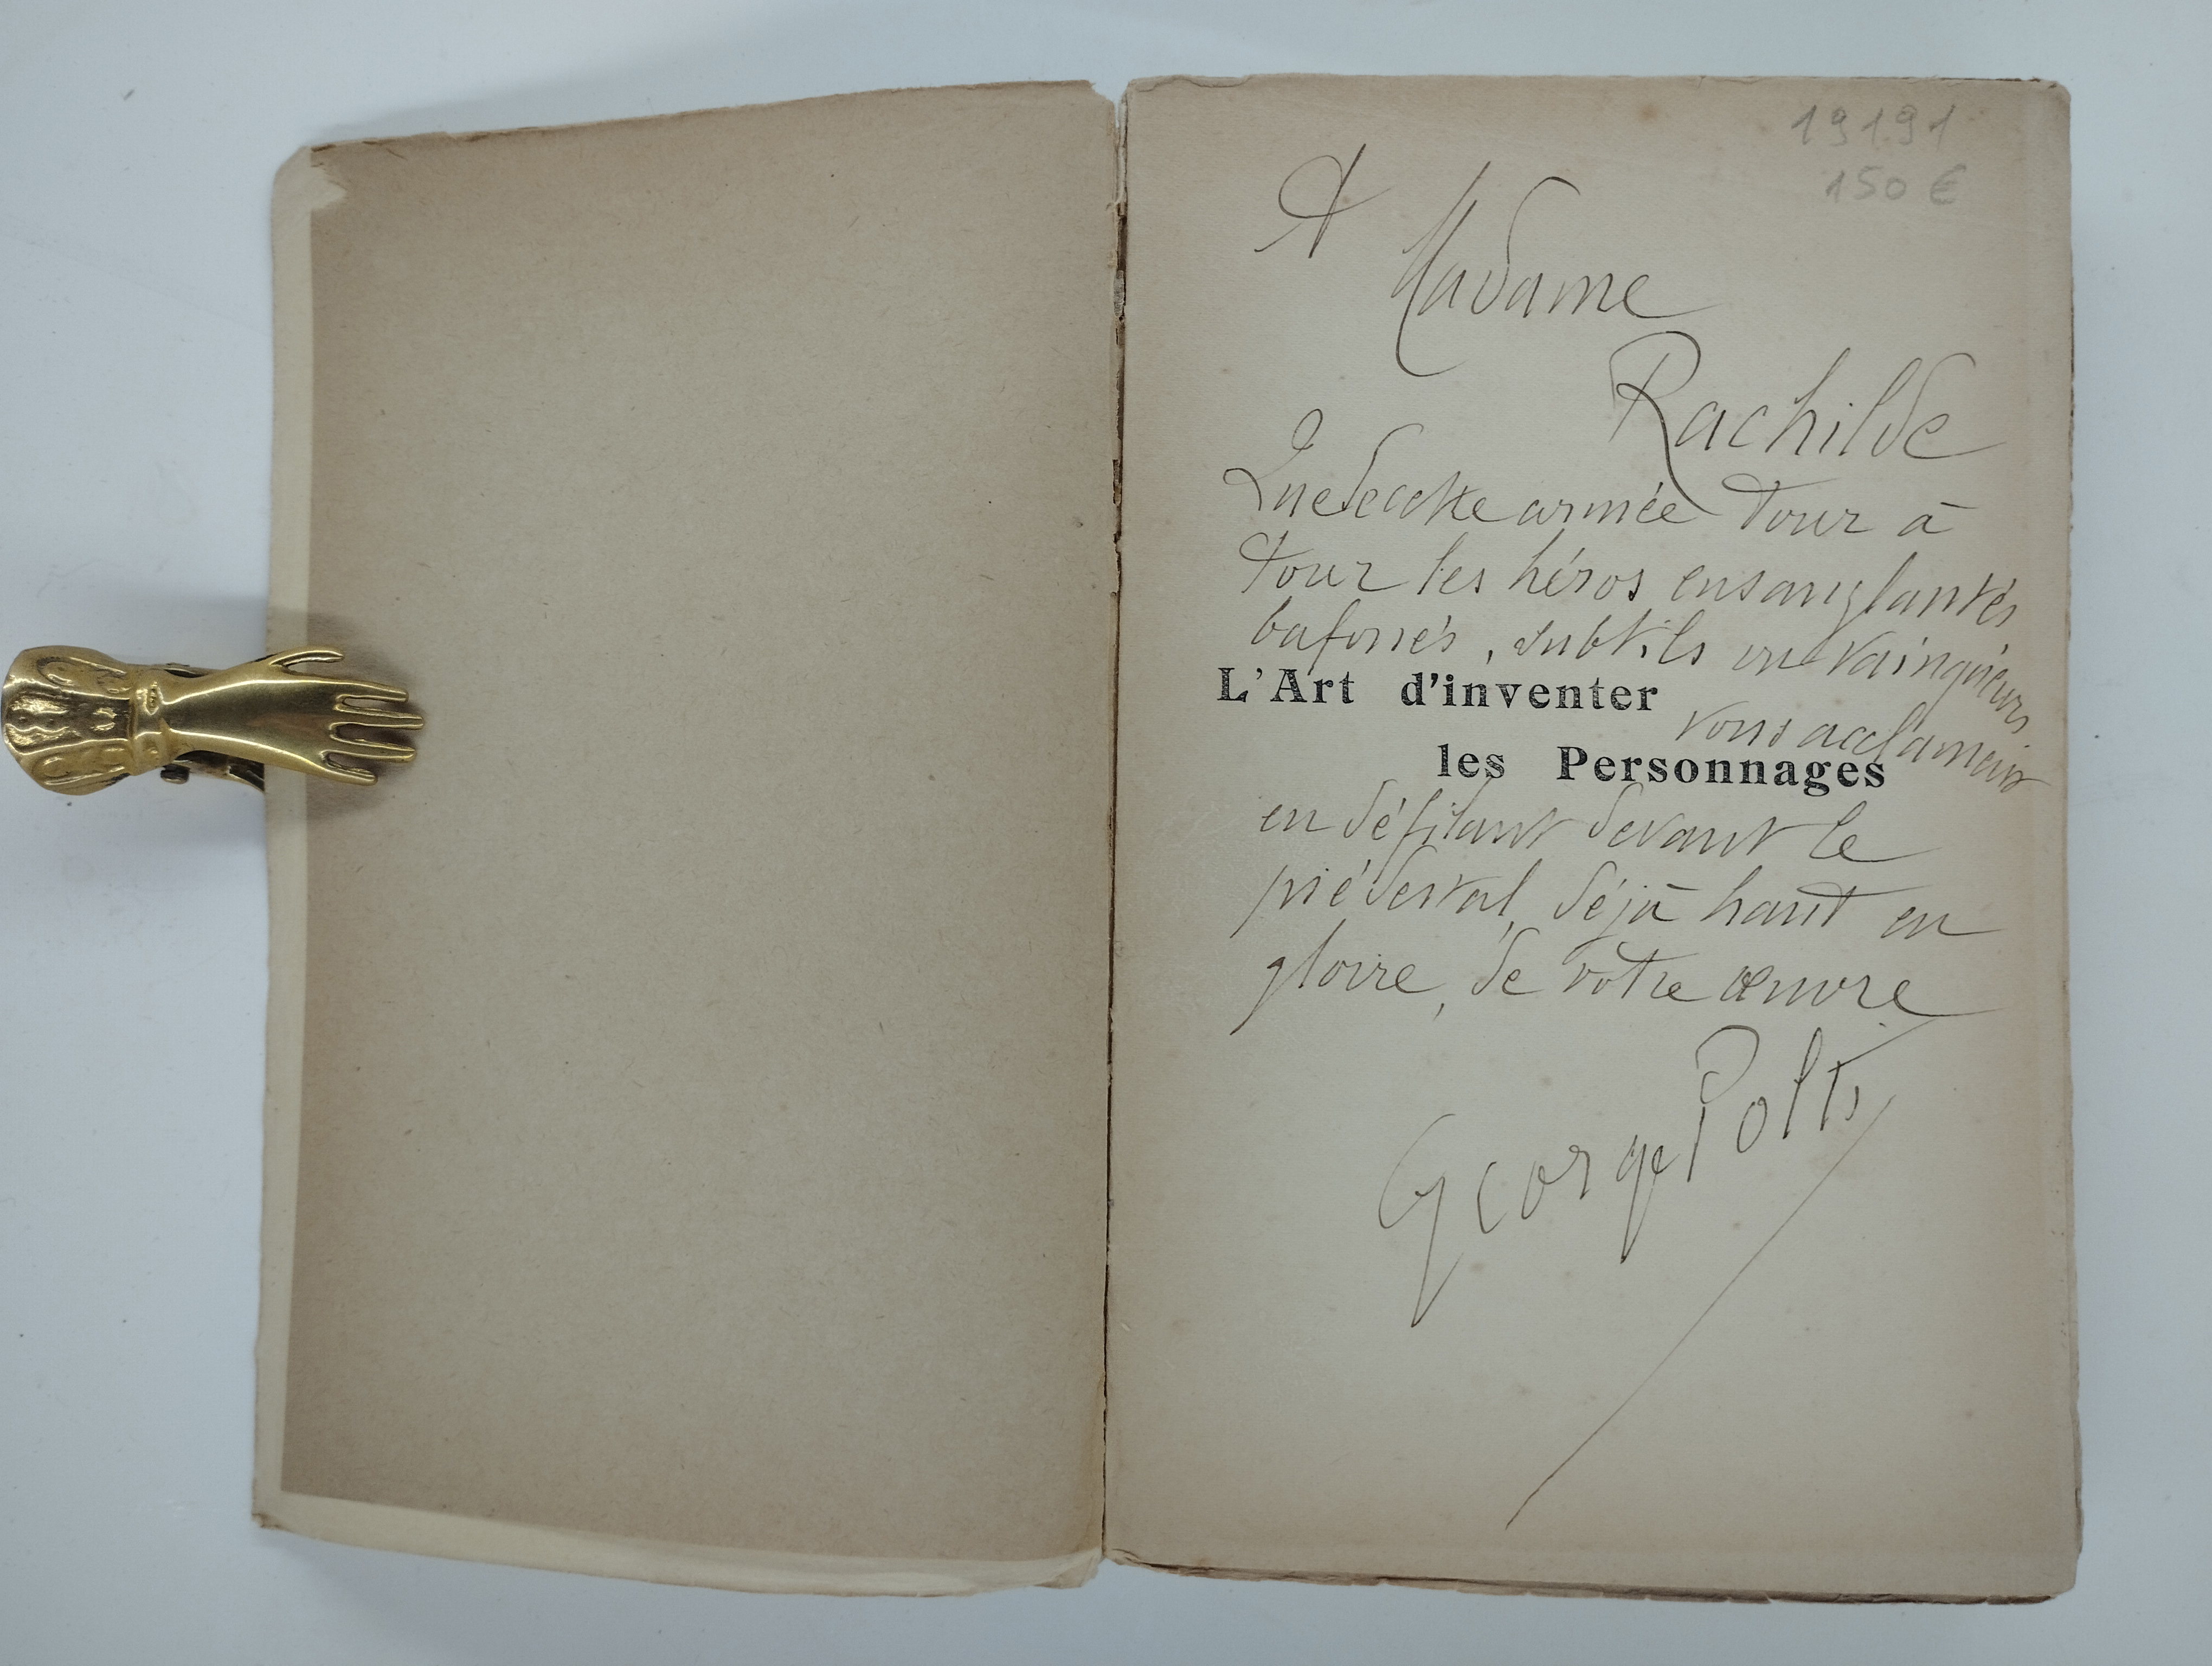 19191
150 €
A
Madame
Rachilde
Que de cette armée tour à
tour les héros ensanglantés
bafoués, subtils ou vainqueurs
L'Art d'inventer
vous acclament
les Personnages
en défilant devant le
piédestal, déjà haut en
gloire, de votre œuvre
George Polti